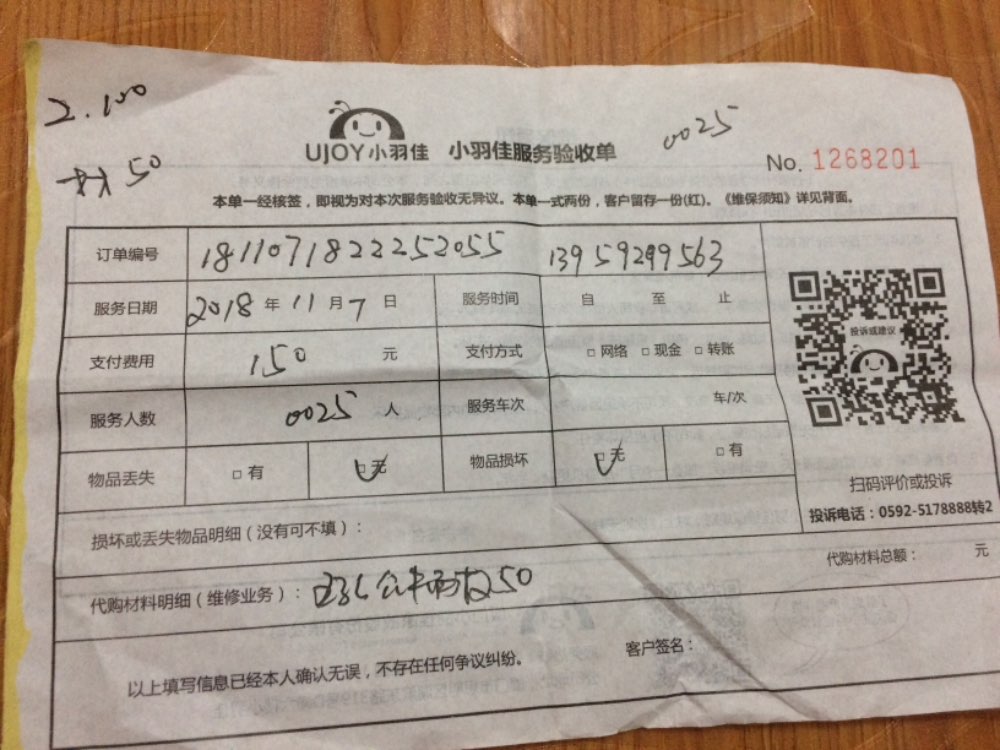 2.100
0025
UJOY小羽佳 小羽佳服务验收单
50
No. 1268201
本单一经核签，即视为对本次服务验收无异议。本单一式两份，客户留存一份(红)。《维保须知》详见背面。
订单编号 1811071822252055 13959299563
服务日期 2018年11月7日 服务时间 自 至 止
支付费用 150 元 支付方式 □网络 □现金 □转账
服务人数 0025 人 服务车次 车/次
物品丢失 □有 □无 物品损坏 □无 □有
投诉或建议
扫码评价或投诉
投诉电话：0592-5178888转2
损坏或丢失物品明细（没有可不填）：
代购材料总额： 元
代购材料明细（维修业务）： 50
客户签名：
以上填写信息已经本人确认无误，不存在任何争议纠纷。